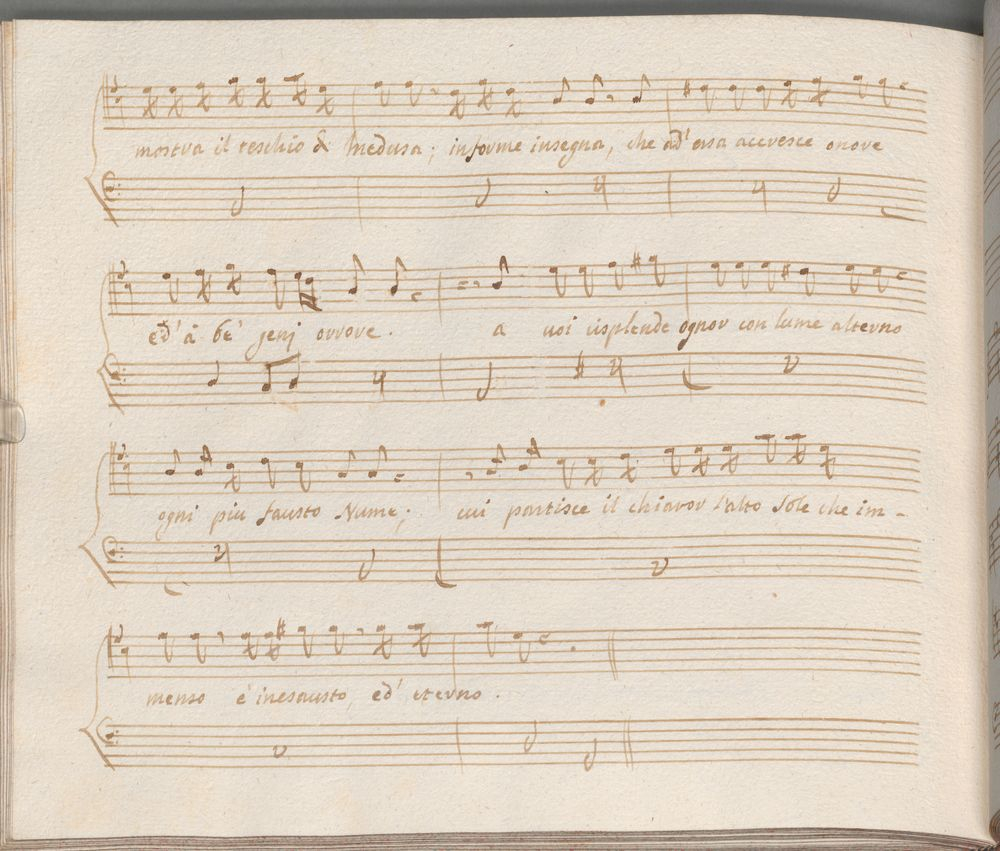 mostra il teschio di Medusa; informe insegna, che ad' essa accresce onore
ed' à be' genj orrore. a voi risplende ognor con lume alterno
ogni piu fausto Nume; cui partisce il chiaror l'alto Sole che im-
menso è inesausto, ed' eterno.